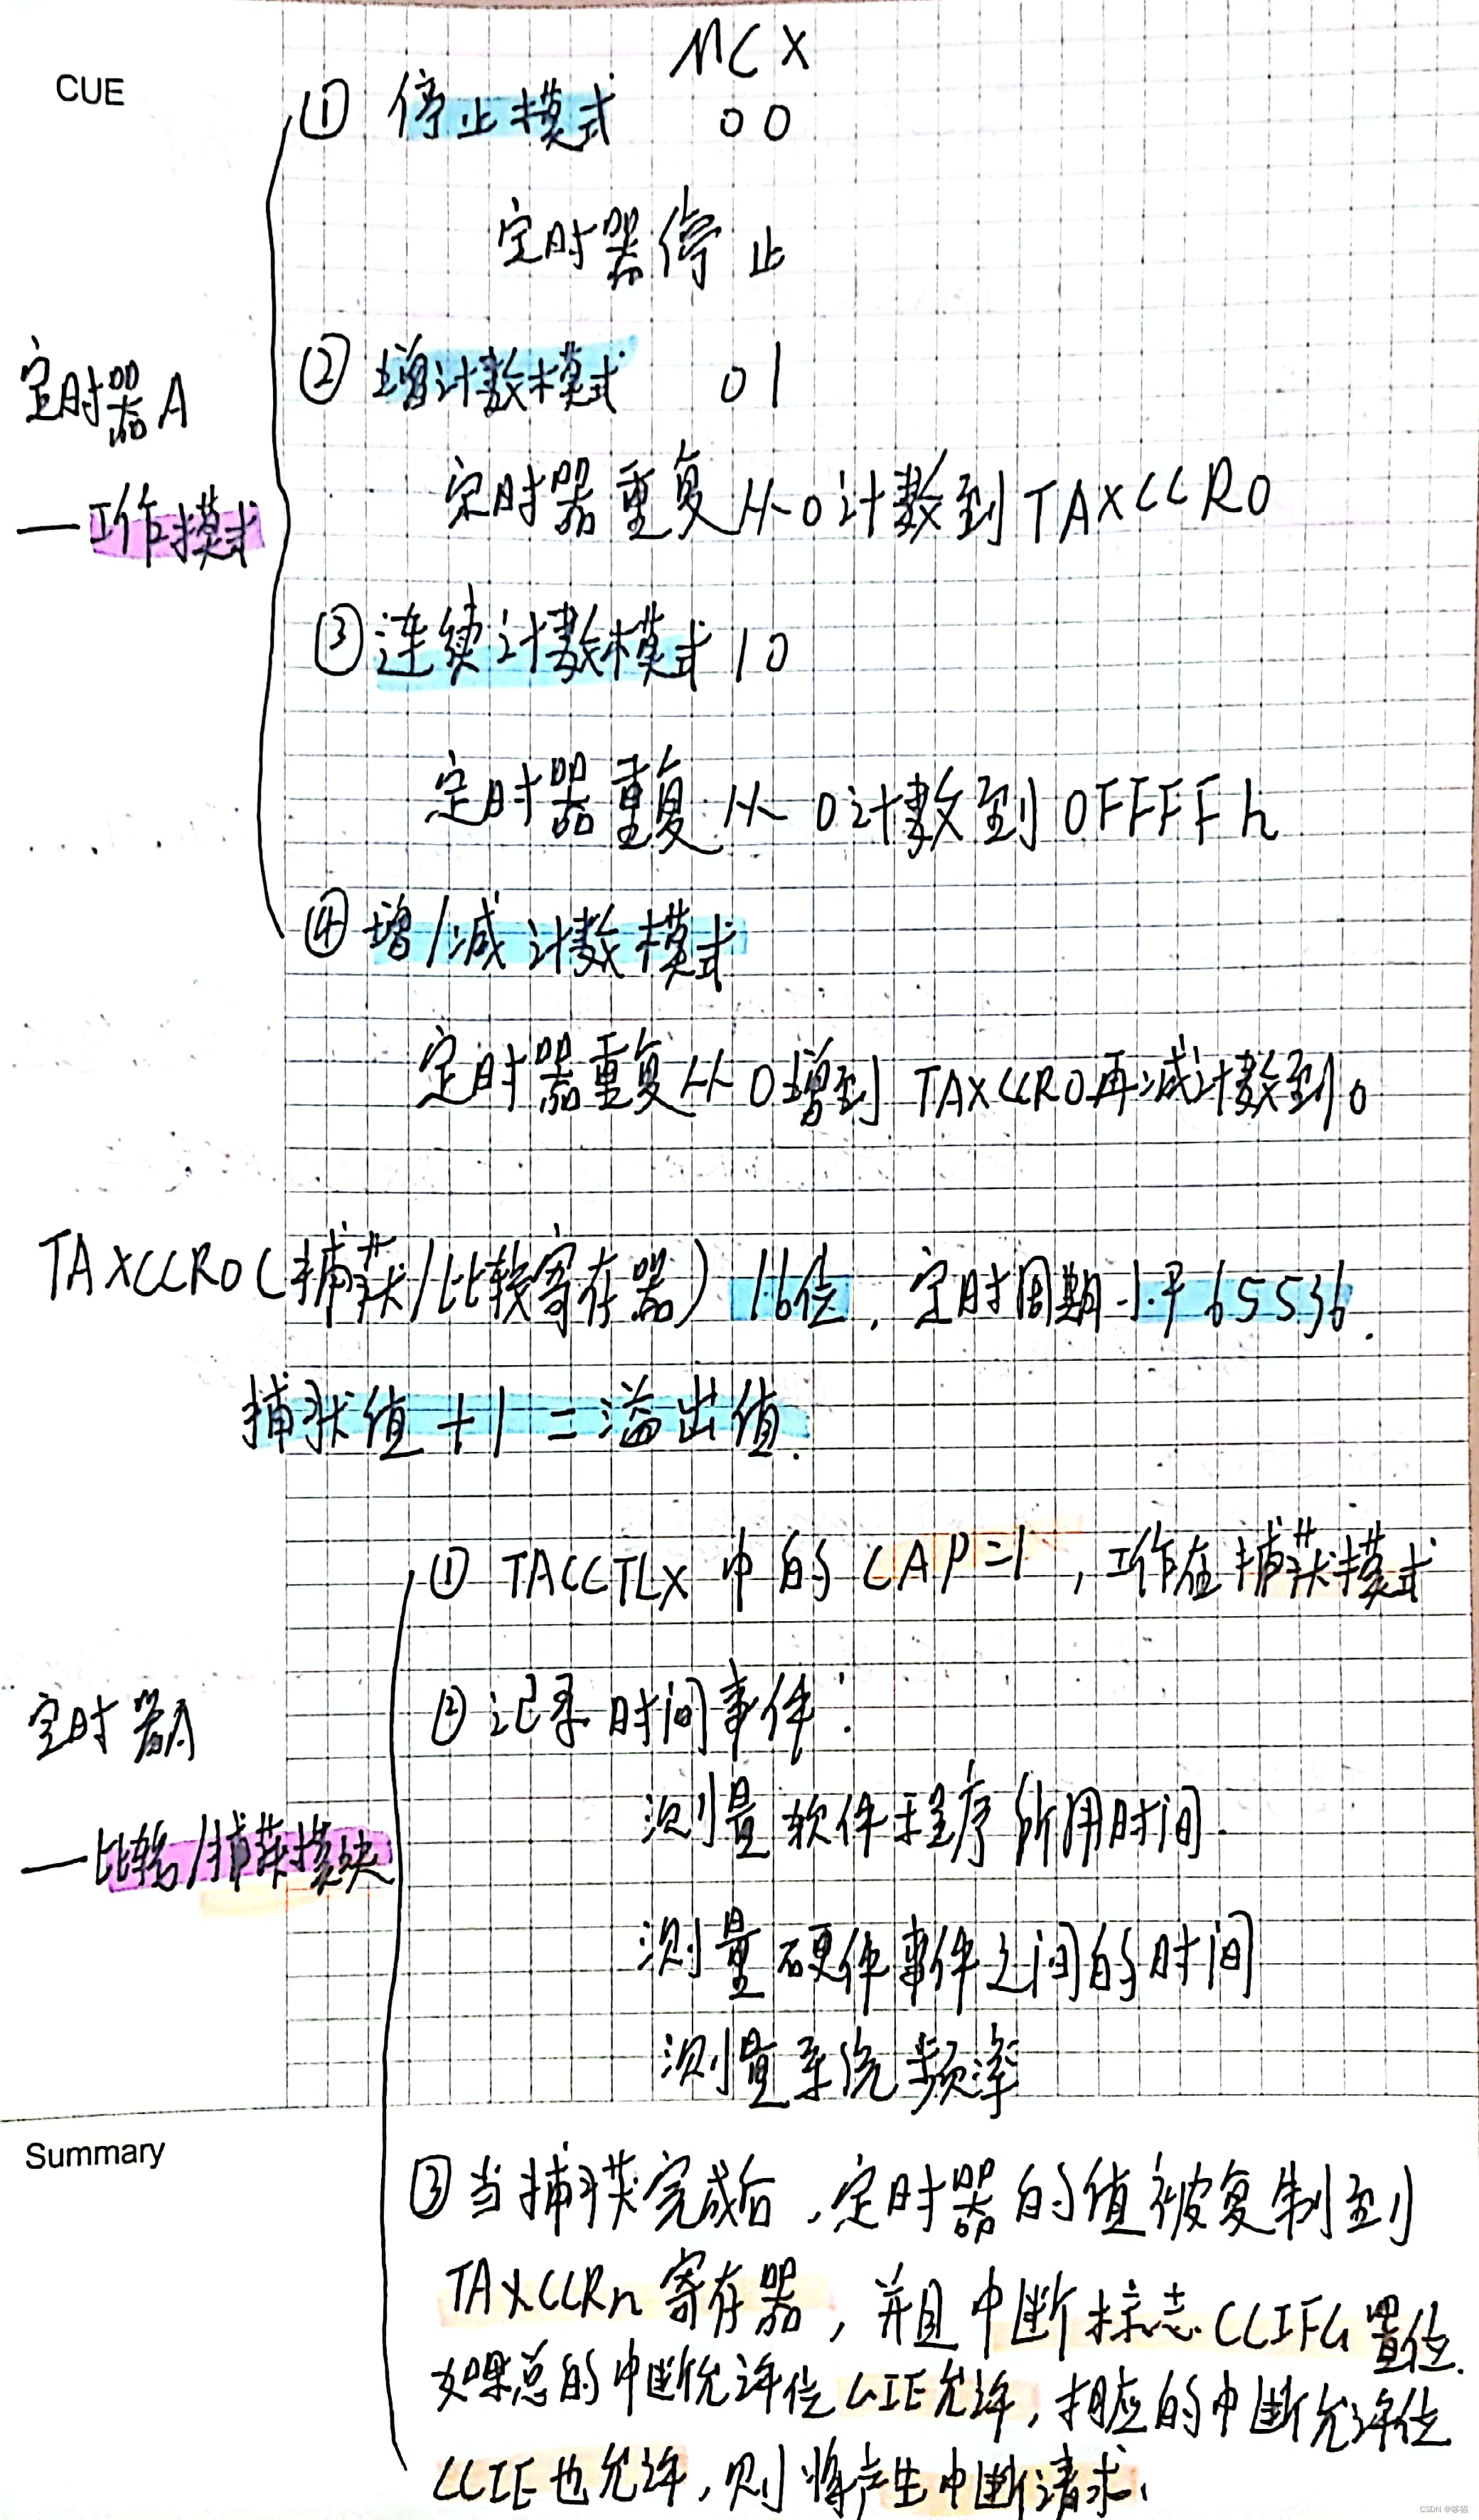 MCX
CUE
① 停止模式 00
定时器停止
② 增计数模式 01
定时器A
定时器重复从0计数到TAXCCR0
—工作模式
③ 连续计数模式 10
定时器重复从0计数到0FFFFh
④ 增/减计数模式
定时器重复从0增到TAXCCR0再减计数到0
TAXCCR0(捕获/比较寄存器)16位,定时周期小于65536.
捕获值+1=溢出值.
① TACCTLX中的CAP=1,工作在捕获模式
② 记录时间事件:
定时器A
测量软件程序所用时间.
—比较/捕获模块
测量硬件事件之间的时间
测量系统频率
Summary
③ 当捕获完成后,定时器的值被复制到
TAXCCRn寄存器,并且中断标志CCIFG置位.
如果总的中断允许位GIE允许,相应的中断允许位
CCIE也允许,则将产生中断请求.
CSDN @哆猫